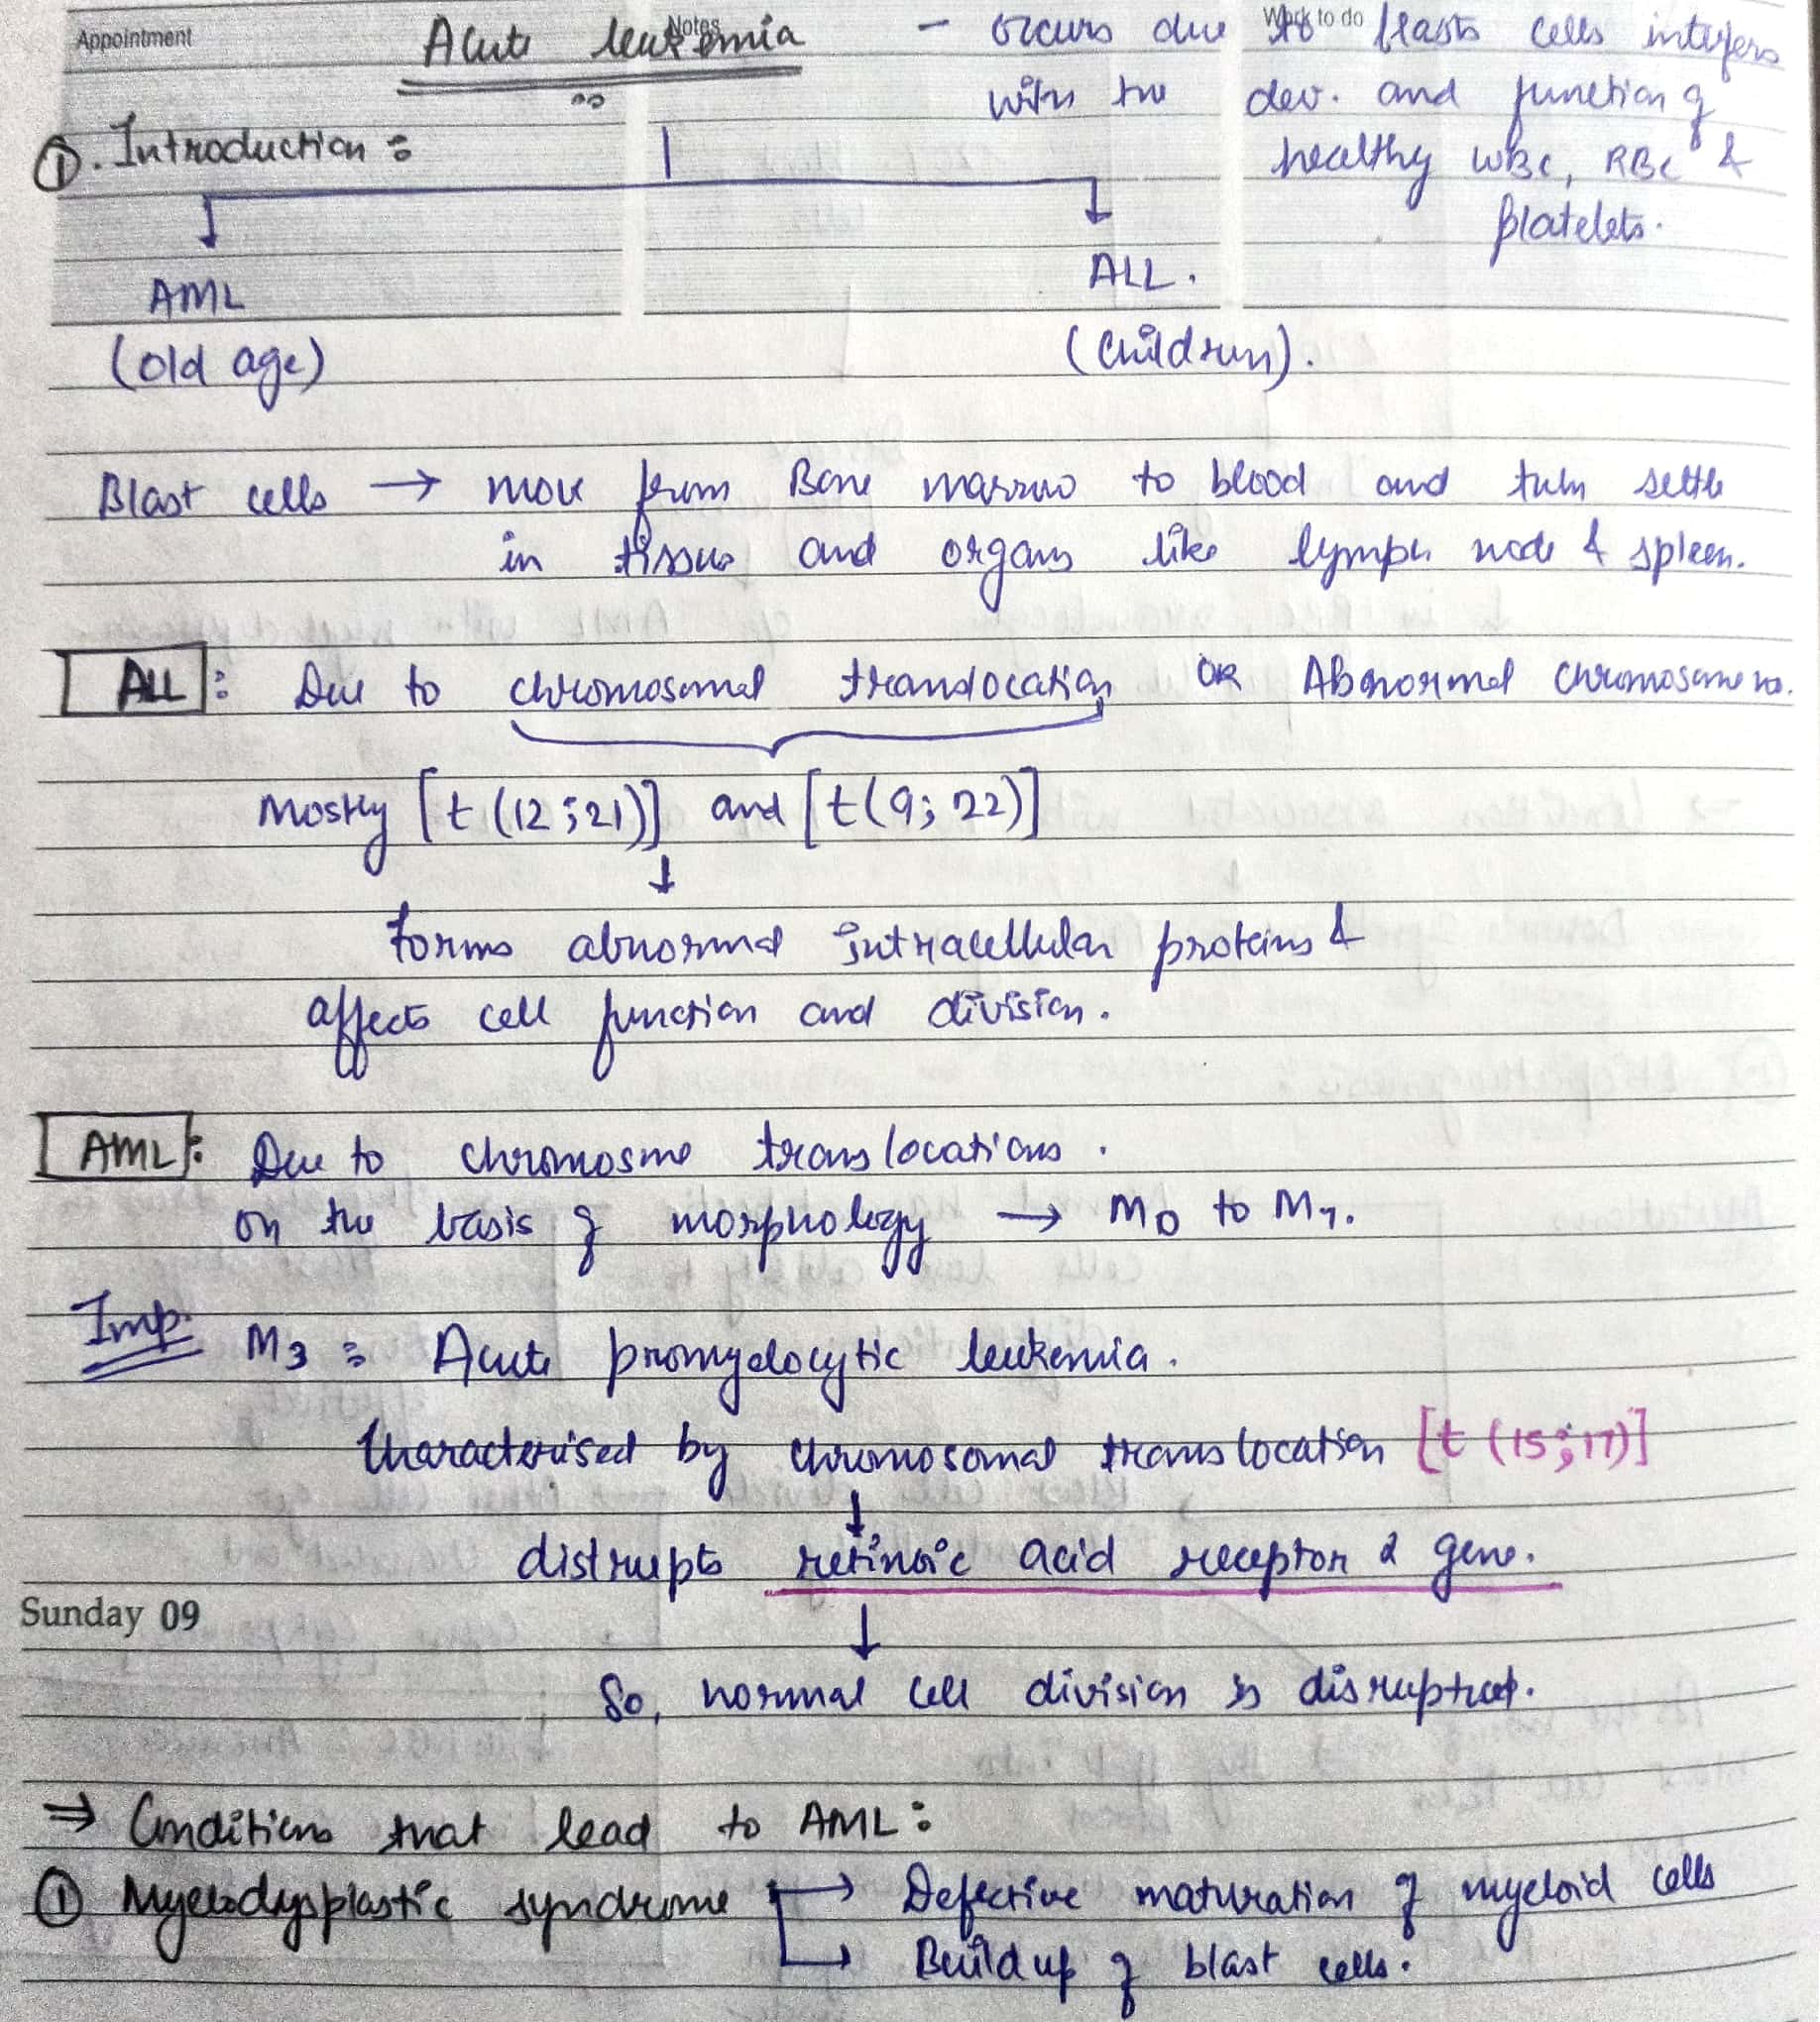 Appointment
Notes
Work to do
Acute leukemia - occurs due to blasts cells interfers
with the dev. and function of
healthy WBC, RBC &
platelets.
①. Introduction :
AML
ALL.
(old age)
(Children).
Blast cells → move from Bone marrow to blood and then settle
in tissue and organs like lymph node & spleen.
ALL : Due to chromosomal translocation OR Abnormal chromosome no.
Mostly [t (12;21)] and [t(9; 22)]
↓
Forms abnormal intracellular proteins &
affects cell function and division.
AML : Due to chromosme translocations.
on the basis of morphology → M0 to M7.
Imp. M3 : Acute promyelocytic leukemia.
Characterised by chromosomal translocation [t (15;17)]
↓
distrupts retinoic acid receptor α gene.
Sunday 09
↓
So, normal cell division is disrupted.
⇒ Conditions that lead to AML :
① Myelodysplastic syndrome → Defective maturation of myeloid cells
→ Buildup of blast cells.